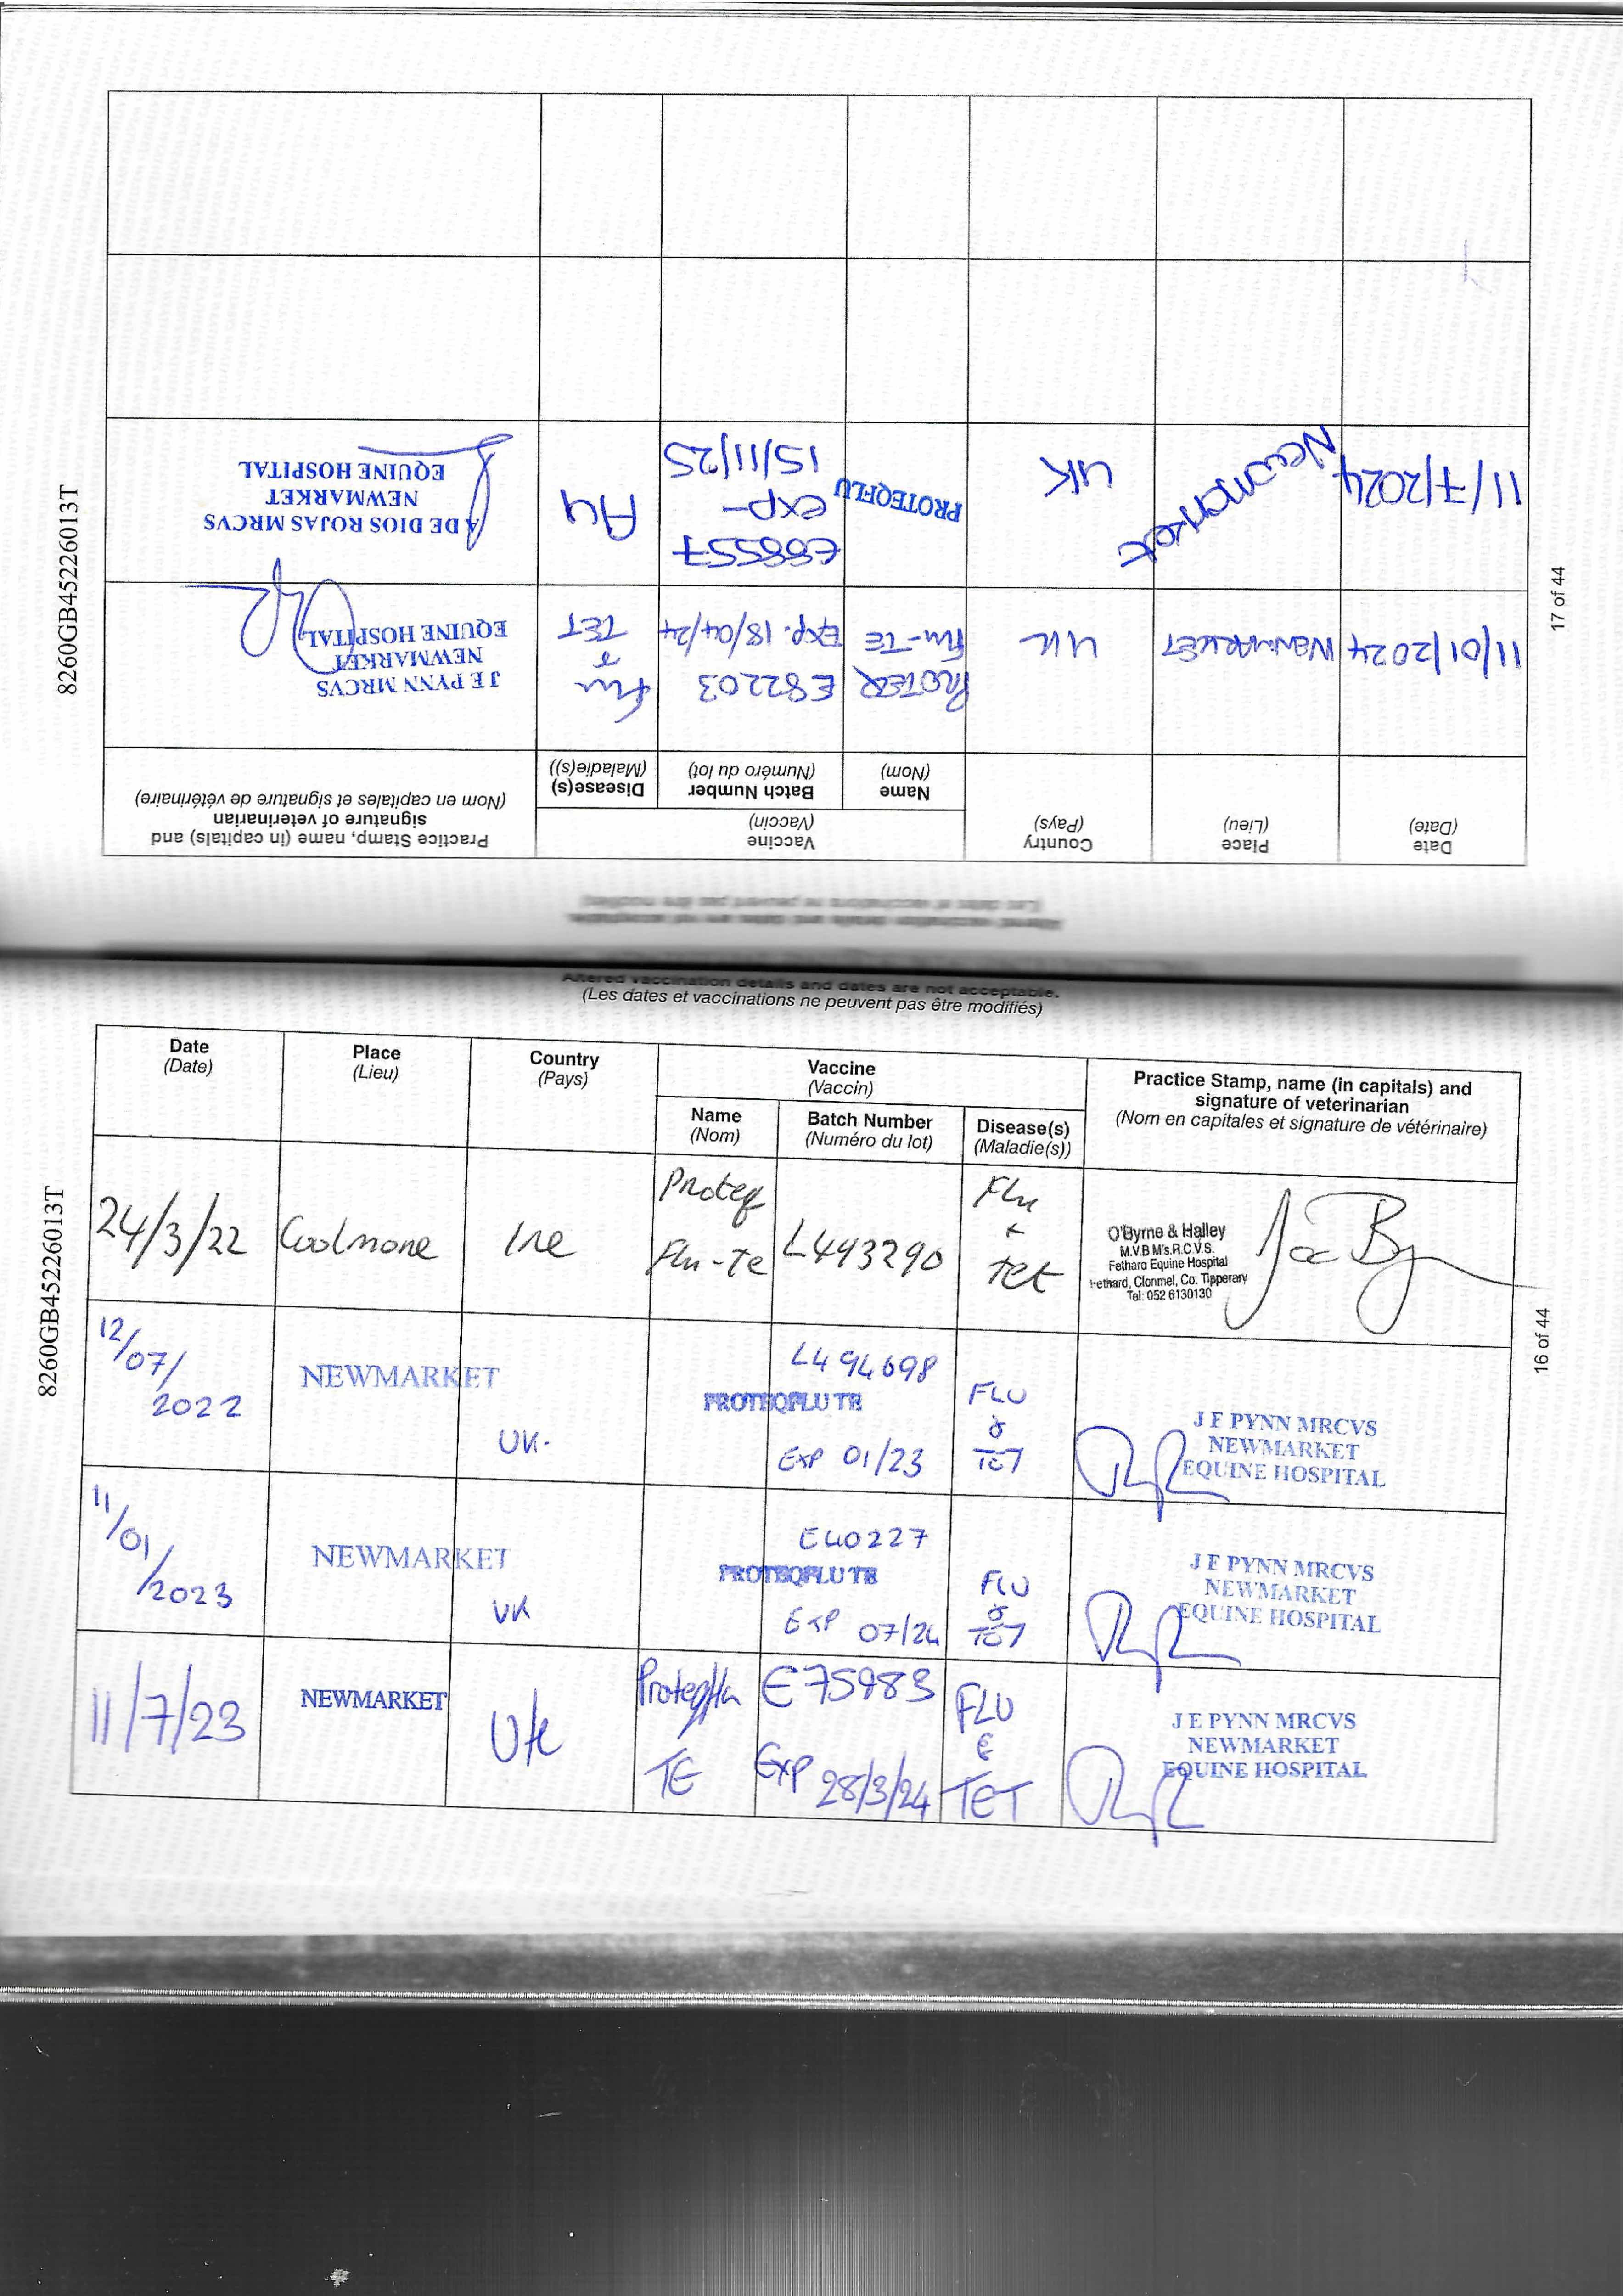 Altered vaccination details and dates are not acceptable.
(Les dates et vaccinations ne peuvent pas être modifiés)
Date
(Date)
Place
(Lieu)
Country
(Pays)
Vaccine
(Vaccin)
Name
(Nom)
Batch Number
(Numéro du lot)
Disease(s)
(Maladie(s))
Practice Stamp, name (in capitals) and
signature of veterinarian
(Nom en capitales et signature de vétérinaire)
24/3/22
Coolmore
Ire
Proteq
Flu-Te
L493290
Flu
+
Tet
O'Byrne & Halley
M.V.B M's.R.C.V.S.
Fethard Equine Hospital
Fethard, Clonmel, Co. Tipperary
Tel: 052 6130130
12/07/
2022
NEWMARKET
UK.
L494698
PROTEQFLU TE
EXP 01/23
FLU
&
TET
J E PYNN MRCVS
NEWMARKET
EQUINE HOSPITAL
11/01/
2023
NEWMARKET
UK
E40227
PROTEQFLU TE
EXP 07/24
FLU
&
TET
J E PYNN MRCVS
NEWMARKET
EQUINE HOSPITAL
11/7/23
NEWMARKET
UK
Proteqflu
TE
E75983
Exp 28/3/24
FLU
&
TET
J E PYNN MRCVS
NEWMARKET
EQUINE HOSPITAL
8260GB45226013T
16 of 44
Altered vaccination details and dates are not acceptable.
(Les dates et vaccinations ne peuvent pas être modifiés)
Date
(Date)
Place
(Lieu)
Country
(Pays)
Vaccine
(Vaccin)
Name
(Nom)
Batch Number
(Numéro du lot)
Disease(s)
(Maladie(s))
Practice Stamp, name (in capitals) and
signature of veterinarian
(Nom en capitales et signature de vétérinaire)
11/01/2024
NEWMARKET
UK
PROTEQ
Flu-TE
E82203
Exp. 18/04/24
Flu
&
TET
J E PYNN MRCVS
NEWMARKET
EQUINE HOSPITAL
11/7/2024
Newmarket
UK
PROTEQFLU
E88557
exp-
15/11/25
A DE DIOS ROJAS MRCVS
NEWMARKET
EQUINE HOSPITAL
8260GB45226013T
17 of 44